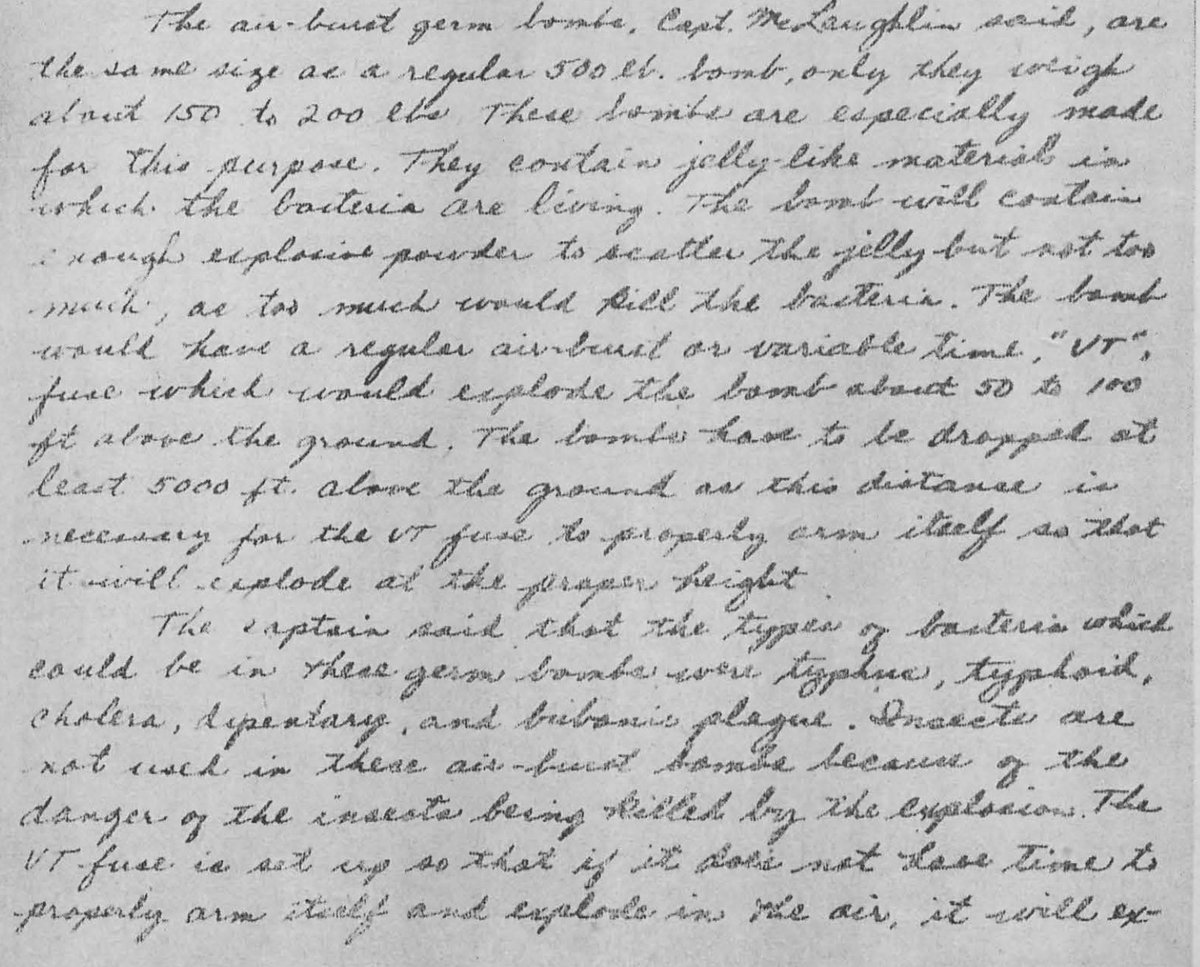 The air-burst germ bombs, Capt. McLaughlin said, are
the same size as a regular 500 lb. bomb, only they weigh
about 150 to 200 lbs These bombs are especially made
for this purpose. They contain jelly-like material in
which the bacteria are living. The bomb will contain
enough explosive powder to scatter the jelly but not too
much, as too much would kill the bacteria. The bomb
would have a regular air-burst or variable time, "VT",
fuse which would explode the bomb about 50 to 100
ft above the ground. The bombs have to be dropped at
least 5000 ft. above the ground as this distance is
necessary for the VT fuse to properly arm itself so that
it will explode at the proper height
The captain said that the types of bacteria which
could be in these germ bombs were typhus, typhoid,
cholera, dysentary, and bubonic plague. Insects are
not used in these air-burst bombs because of the
danger of the insects being killed by the explosion. The
VT fuse is set up so that if it does not have time to
properly arm itself and explode in the air, it will ex-